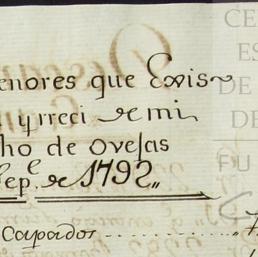 enores que Exis~
y rreci de mi
ho de ovejas
Sep.e de 1792,,
Capados